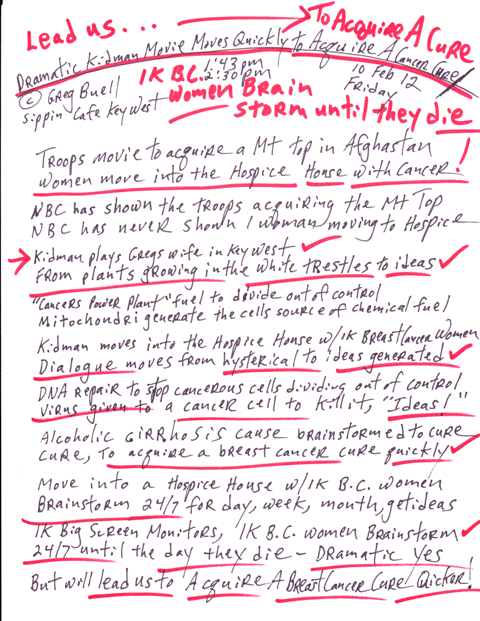 Lead us... To Acquire A Cure
Dramatic Kidman Movie Moves Quickly to Acquire A Cancer Cure
© Greg Buell 1K B.C. 1:43pm 10 Feb 12
2:30pm Friday
Sippin Cafe Key West Women Brain
storm until they die
Troops movie to acquire a Mt top in Afghastan
Women move into the Hospice House with Cancer!
NBC has shown the troops acquiring the Mt Top
NBC has never shown 1 woman moving to Hospice
Kidman plays Gregs wife in Key West
From plants growing in the white trestles to ideas
"Cancers Power Plant" fuel to divide out of control
Mitochondri generate the cells source of chemical fuel
Kidman moves into the Hospice House w/1K Breast Cancer Women
Dialogue moves from hysterical to ideas generated
DNA repair to stop cancerous cells dividing out of control
Virus given to a cancer cell to kill it, "Ideas!"
Alcoholic Cirrhosis cause brainstormed to cure
Cure, To acquire a breast cancer cure quickly
Move into a Hospice House w/1K B.C. women
Brainstorm 24/7 for day, week, month, get ideas
1K Big Screen Monitors, 1K B.C. women Brainstorm
24/7 until the day they die - Dramatic yes
But will lead us to Acquire A Breast Cancer Cure Qicker!